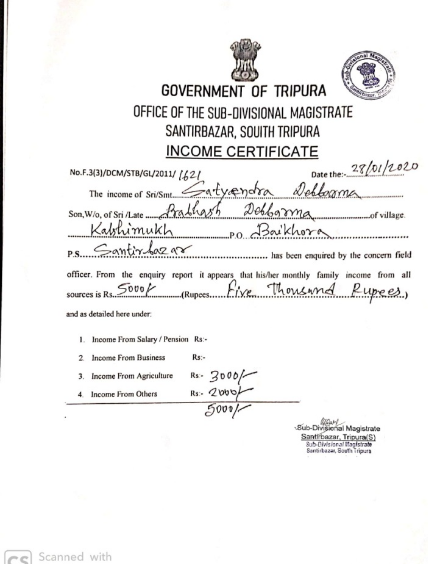 GOVERNMENT OF TRIPURA
OFFICE OF THE SUB-DIVISIONAL MAGISTRATE
SANTIRBAZAR, SOUITH TRIPURA
INCOME CERTIFICATE
No.F.3(3)/DCM/STB/GL/2011/ 1621 Date the:- 28/01/2020
The income of Sri/Smt. Satyendra Debbarma
Son,W/o, of Sri /Late Prabhash Debbarma of village
Kalshimukh P.O Baikhora
P.S. Santirbazar has been enquired by the concern field
officer. From the enquiry report it appears that his/her monthly family income from all
sources is Rs. 5000/- (Rupees. Five Thousand Rupees.)
and as detailed here under:
1. Income From Salary / Pension Rs:-
2. Income From Business Rs:-
3. Income From Agriculture Rs:- 3000/-
4. Income From Others Rs:- 2000/-
5000/-
Sub-Divisional Magistrate
Santirbazar, Tripura(S)
Sub-Divisional Magistrate
Santirbazar, South Tripura
CS Scanned with